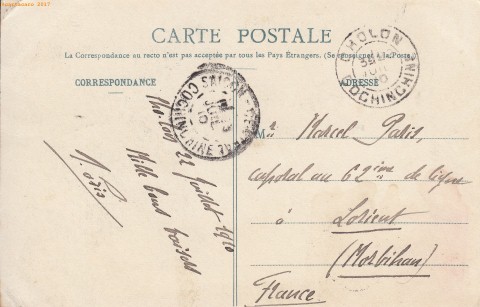 CARTE POSTALE
La Correspondance au recto n'est pas acceptée par tous les Pays Étrangers. (Se renseigner à la Poste)
CORRESPONDANCE
ADRESSE
CHOLON
COCHINCHINE
SAIGON
COCHINCHINE
22 Juillet 1910
Mille bons baisers
Mr Marcel Paris,
caporal au 62ième de ligne
à
Lorient
(Morbihan)
France